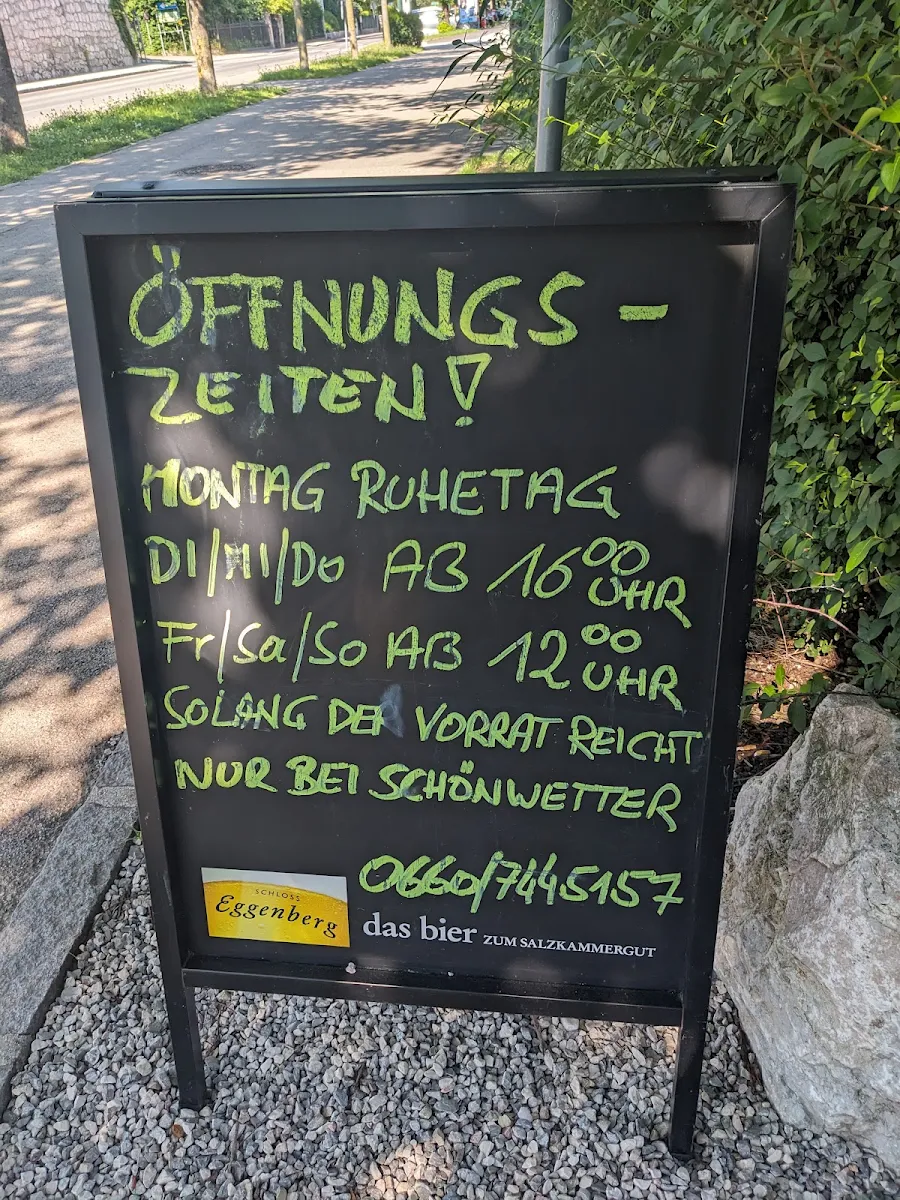 ÖFFNUNGS -
ZEITEN!
MONTAG RUHETAG
DI/MI/Do AB 16⁰⁰ UHR
Fr/Sa/So AB 12⁰⁰ UHR
SOLANG DER VORRAT REICHT
NUR BEI SCHÖNWETTER
0660/7445157
SCHLOSS
Eggenberg
das bier ZUM SALZKAMMERGUT